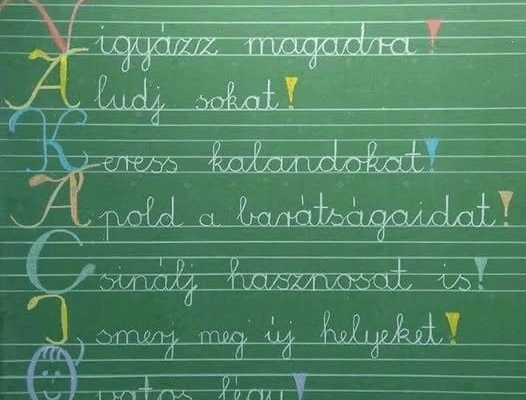 Vigyázz magadra!
Aludj sokat!
Keress kalandokat!
Apold a barátságaidat!
Csinálj hasznosat is!
Ismerj meg új helyeket!
Óvatos légy!